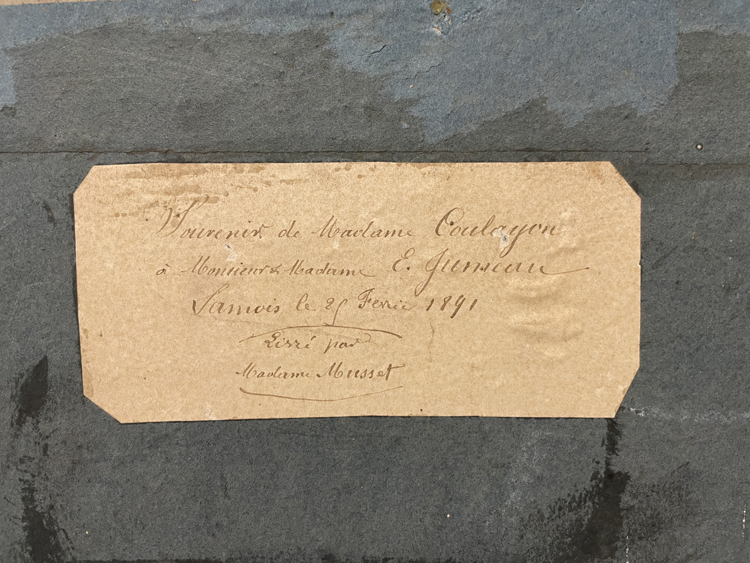 Souvenir de Madame Coulayon
à Monsieur & Madame E.
Samois le 25 Fevrie 1891
par
Madame Musset